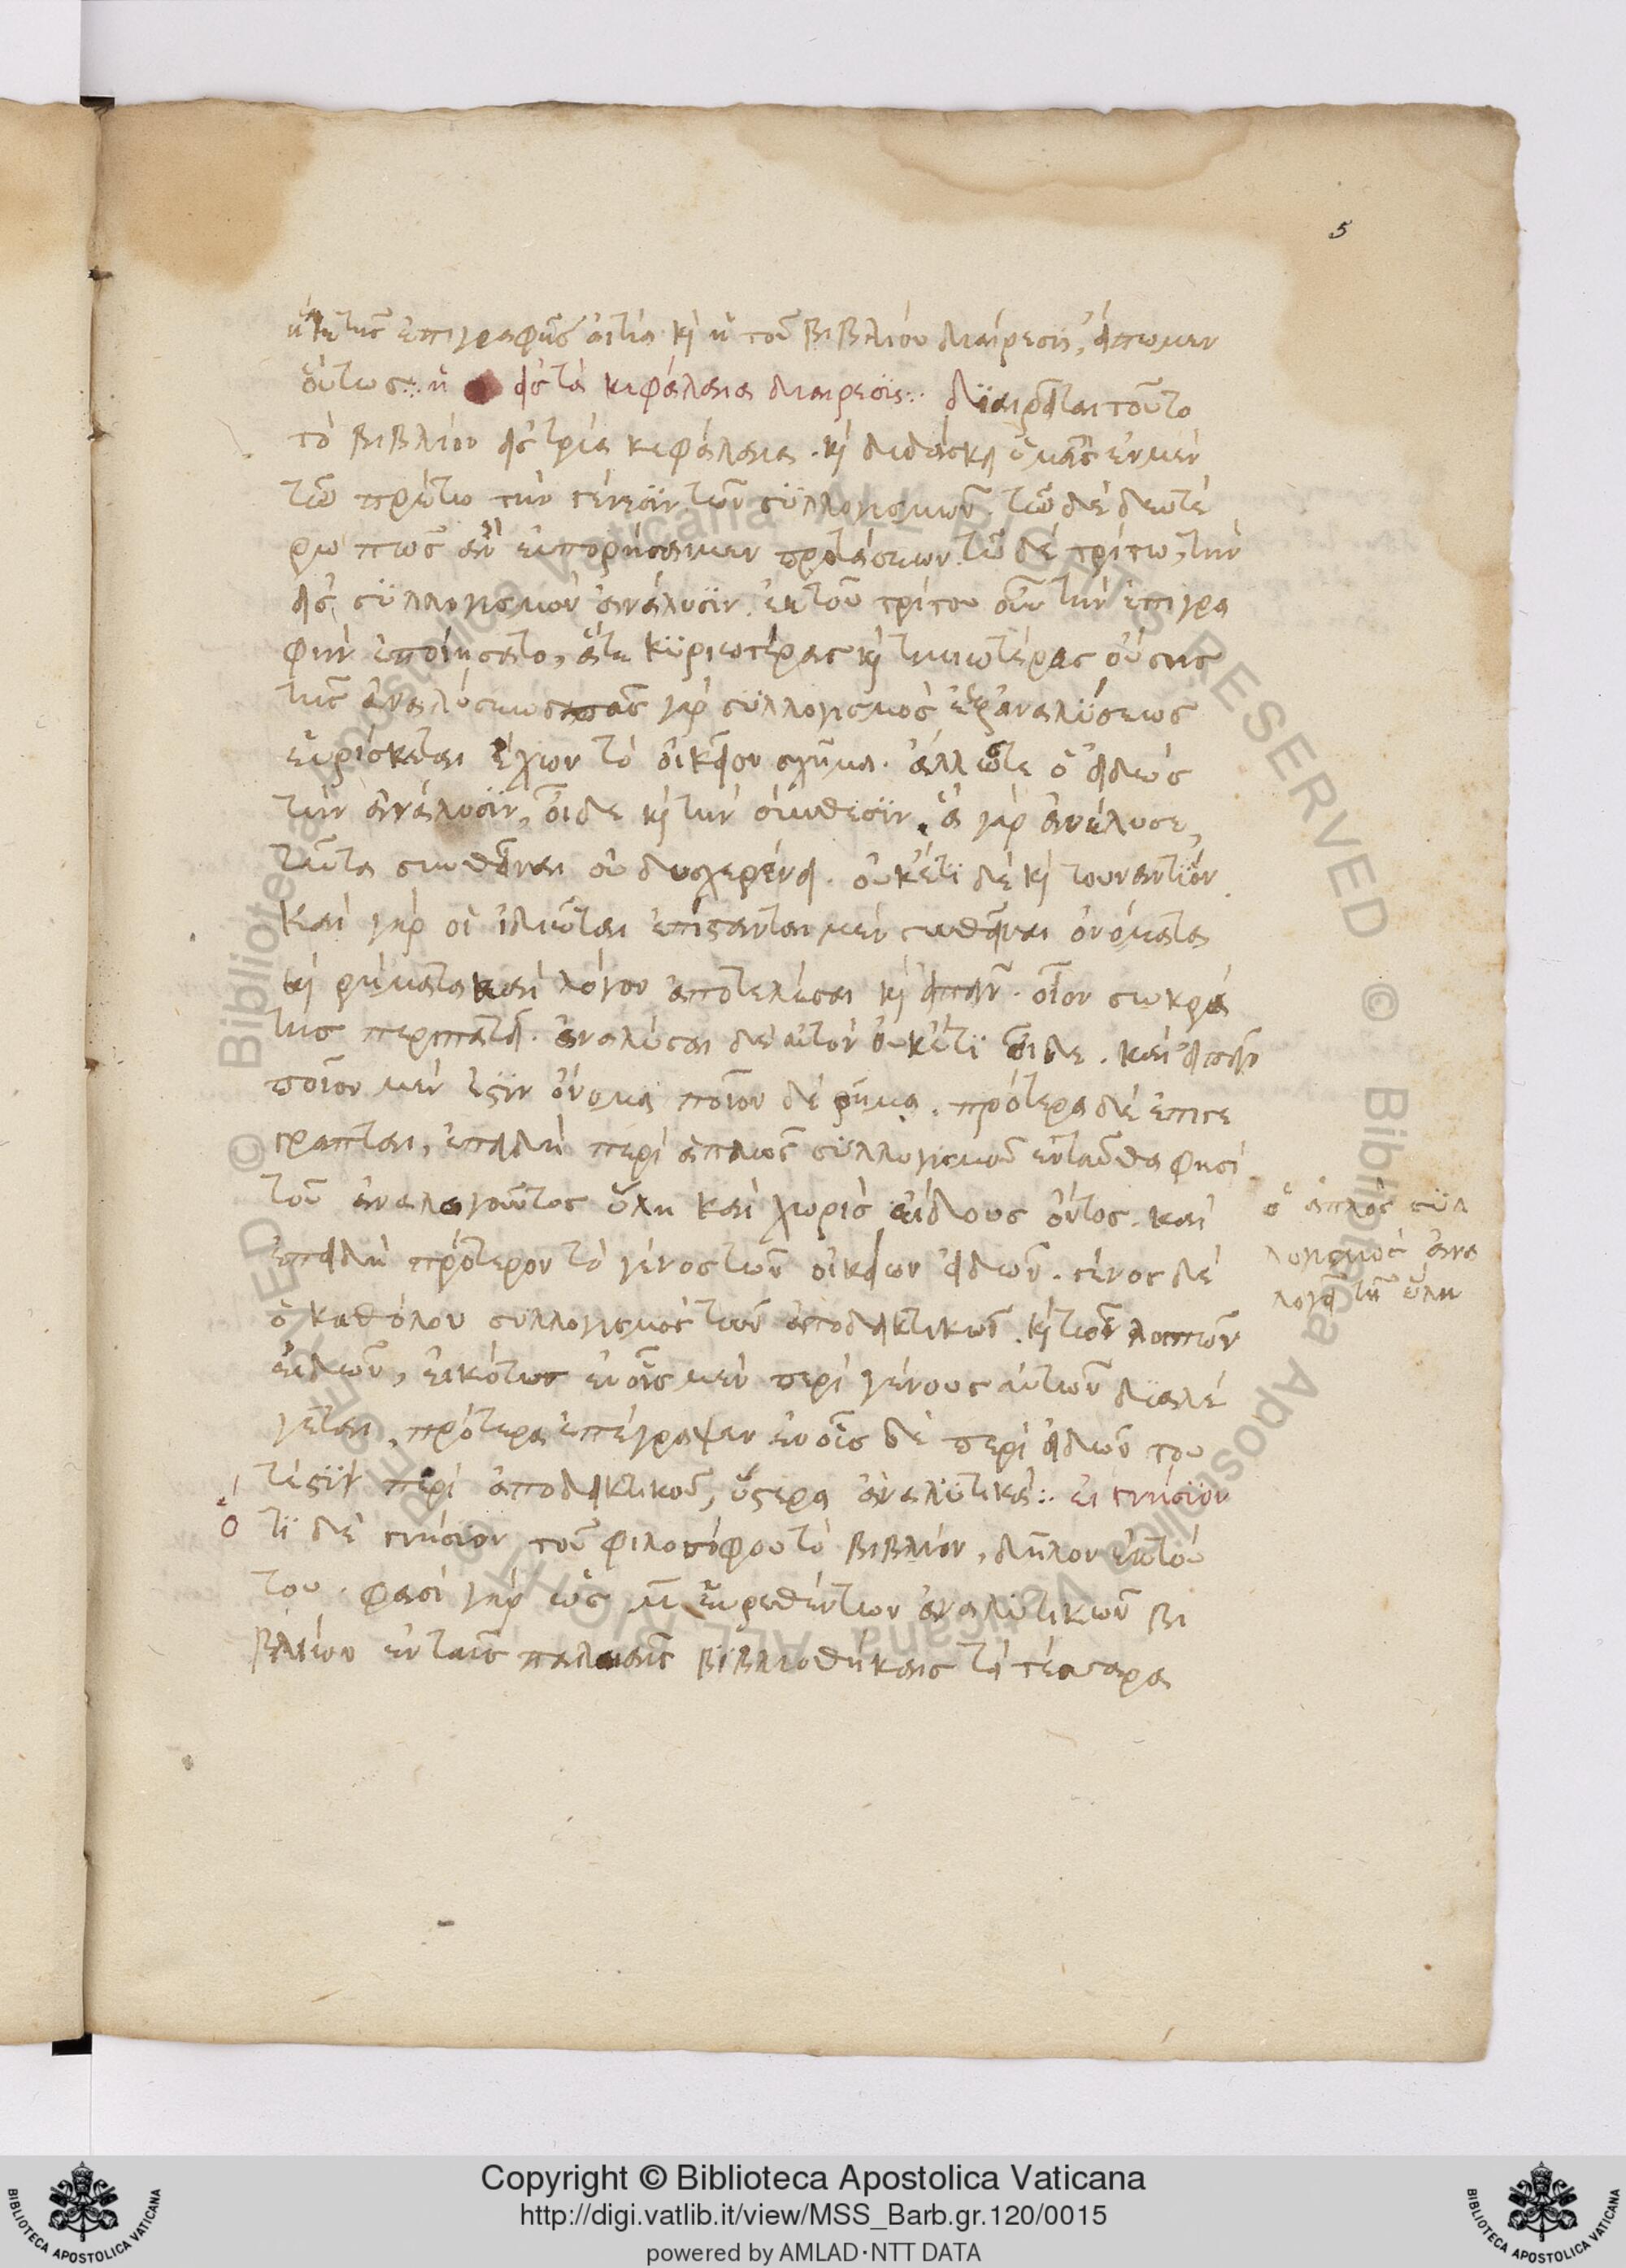 5
ἡ τῆς ἐπιγραφῆς αἰτία κὶ ἡ τοῦ βιβλίου διαίρεσις, εἴπωμεν
οὕτως:. ἡ εἰς τὰ κεφάλαια διαίρεσϊς:. Δϊαιρεῖται τοῦτο
τὸ βιβλίον εἰς τρία κεφάλαια. κὶ διδάσκει ἡμᾶς ἐν μὲν
τῶ πρώτω τὴν γένεσϊν τῶν συλλογισμῶν. τῶ δὲ δευτέ
ρω πῶς ἂν εὐπορήσαιμεν προτάσεων. τῶ δὲ τρίτω, τὴν
εἰς συλλογισμὸν ἀνάλυσϊν. ἐκ τοῦ τρίτου οὖν τὴν ἐπιγρα
φὴν ἐποιήσατο, ἅτε κϋριωτέρας κὶ τιμιωτέρας οὔσης
τῆς ἀναλύσεως πᾶς γὰρ συλλογισμὸς ἐξ ἀναλύσεως
εὑρίσκεται ἔχων τὸ οἰκεῖον σχῆμα. ἄλλωςτε ὁ εἰδὼς
τὴν ἀνάλυσϊν, οἶδε κὶ τὴν σύνθεσϊν. ἃ γὰρ ἀνέλυσε,
ταῦτα συνθεῖναι οὐ δυσχεραίνει. οὐκέτϊ δὲ κὶ τουναντίον
Καὶ γὰρ οἱ ἰδιῶται ἐπίστανται μὲν συνθεῖναι ὀνόματα
κὶ ρήματα καὶ λόγον ἀποτελέσαι κὶ εἰπεῖν. οἷον σωκρά
της περιπατεῖ. ἀναλύσαι δὲ αὐτὸν οὐκέτϊ οἶδε. καὶ εἰπεῖν
ποῖον μέν ἐστϊν ὄνομα ποῖον δὲ ρῆμα. πρότερα δὲ ἐπιγέ
γραπται, ἐπειδὴ περὶ ἁπλῶς συλλογισμοῦ ἐνταῦθα φησὶ
τοῦ ἀναλογοῦντος ὕλη καὶ χωρὶς εἴδους ὄντος. καὶ
ἐπειδὴ πρότερον τὸ γένος τῶν οἰκείων εἰδῶν. γένος δὲ
ὁ καθόλου συλλογισμὸς τῶν ἀποδεικτικῶν. κὶ τῶν λοιπῶν
εἰδῶν, εἰκότως ἐν οἷς μὲν περὶ γένους αὐτῶν διαλέ
γεται, πρότερα ἐπέγραψεν ἐν οἷς δὲ περὶ εἰδῶν του
τέστϊν περὶ ἀποδεικτικοῦ, ὕστερα ἀναλϋτικά:. εἰ γνήσϊον
ὅτϊ δὲ γνήσϊον τοῦ φιλοσόφου τὸ βιβλίον, δῆλον ἐκ τού
του. φασὶ γὰρ ὡς μ εὑρεθέντων ἀναλϋτικῶν βι
βλίων ἐν ταῖς παλαιαῖς βϊβλιοθήκαις τὰ τέσσαρα
ὁ ἁπλῶς συλ
λογισμὸς ἀνα
λογεῖ τῆ ὕλη
Copyright © Biblioteca Apostolica Vaticana
http://digi.vatlib.it/view/MSS_Barb.gr.120/0015
powered by AMLAD·NTT DATA